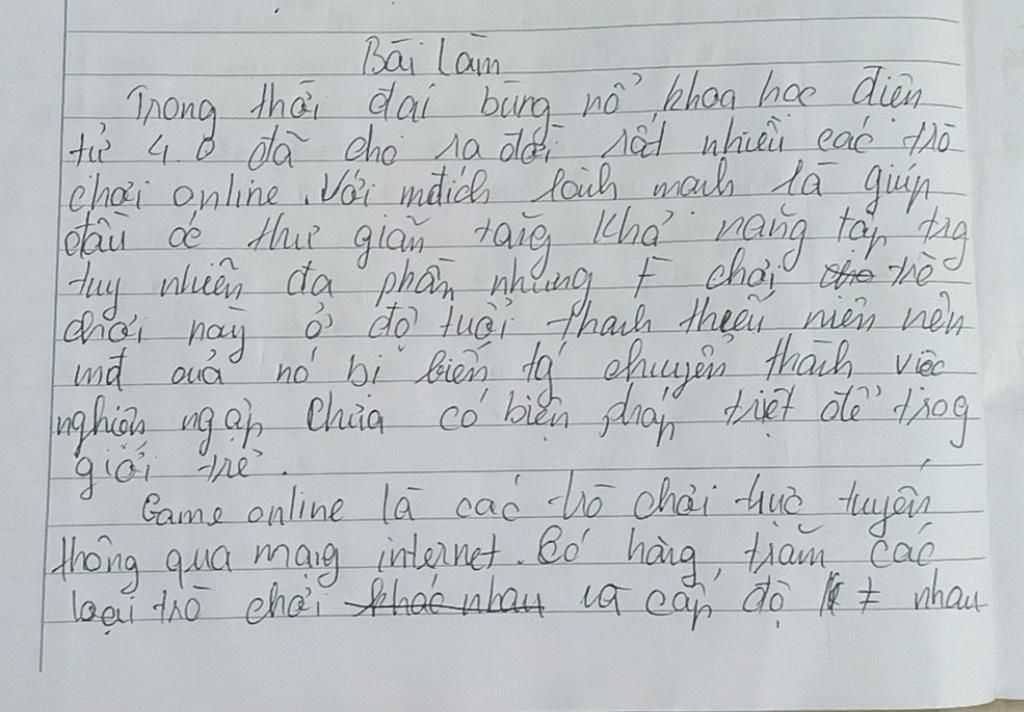 Bài làm
Trong thời đại bùng nổ khoa học điện
tử 4.0 đã cho ra đời rất nhiều các trò
chơi online. Với mđích lành mạnh là giúp
đầu óc thư giãn tăng khả năng tập trg
tuy nhiên đa phần những F chơi trò
chơi này ở độ tuổi thanh thiếu niên nên
mđ của nó bị biến tg chuyển thành việc
nghiện ngập chưa có biện pháp triệt để trog
giới trẻ.
Game online là các trò chơi trực tuyến
thông qua mạng internet. Có hàng trăm các
loại trò chơi khác nhau và cấp độ ≠ nhau